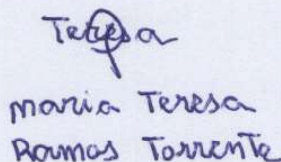 Teresa
maria Teresa
Ramos Torrente